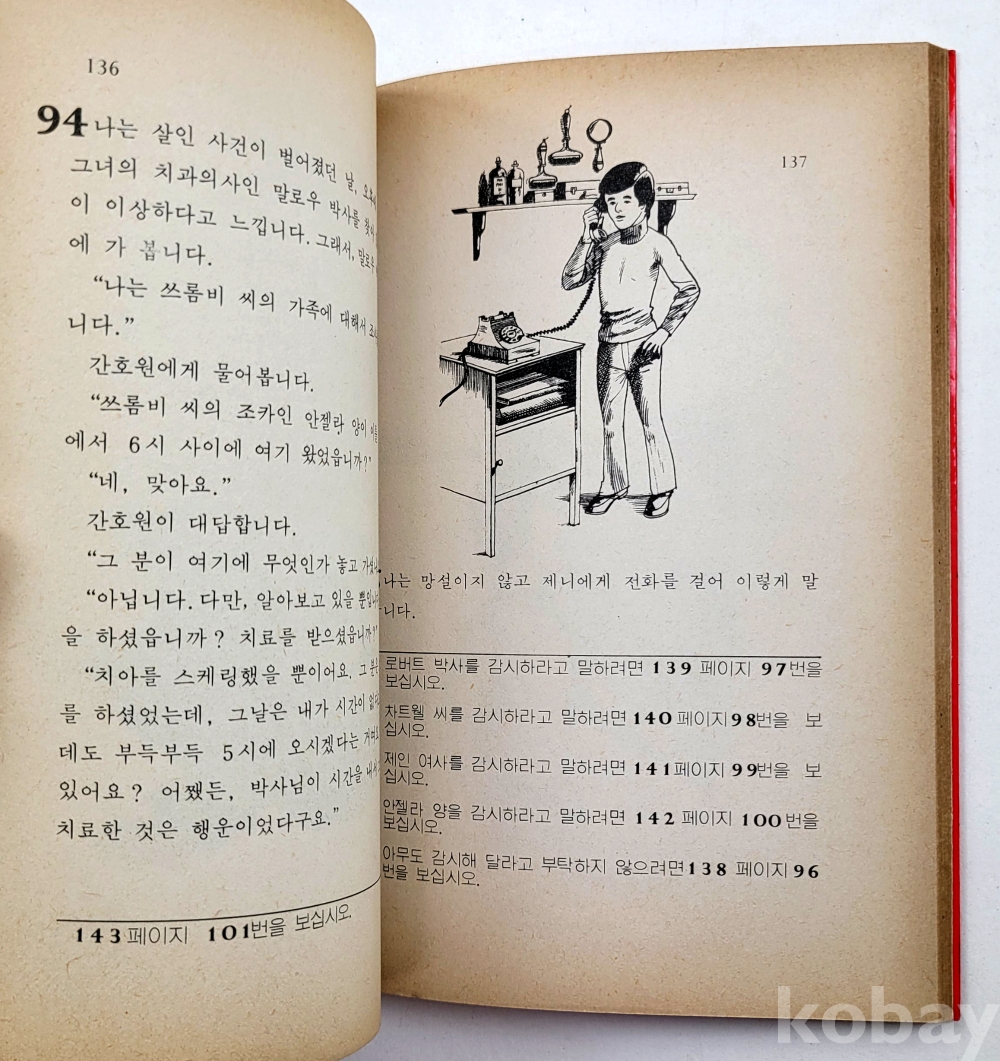 136
94 나는 살인 사건이 벌어졌던 날,
그녀의 치과의사인 말로우 박사를
이 이상하다고 느낍니다. 그래서, 말로우
에 가 봅니다.
“나는 쓰롬비 씨의 가족에 대해서
니다.”
간호원에게 물어봅니다.
“쓰롬비 씨의 조카인 안젤라 양이
에서 6시 사이에 여기 왔었읍니까?”
“네, 맞아요.”
간호원이 대답합니다.
“그 분이 여기에 무엇인가 놓고
“아닙니다. 다만, 알아보고 있을
을 하셨읍니까? 치료를 받으셨읍니까?”
“치아를 스케링했을 뿐이어요. 그
를 하셨었는데, 그날은 내가 시간이
데도 부득부득 5시에 오시겠다는
있어요? 어쨌든, 박사님이 시간을
치료한 것은 행운이었다구요.”
143페이지 101번을 보십시오.
137
나는 망설이지 않고 제니에게 전화를 걸어 이렇게 말
니다.
로버트 박사를 감시하라고 말하려면 139 페이지 97번을
보십시오.
차트웰 씨를 감시하라고 말하려면 140 페이지 98번을 보
십시오.
제인 여사를 감시하라고 말하려면 141 페이지 99번을 보
십시오.
안젤라 양을 감시하라고 말하려면 142 페이지 100번을
보십시오.
아무도 감시해 달라고 부탁하지 않으려면 138 페이지 96
번을 보십시오.
kobay